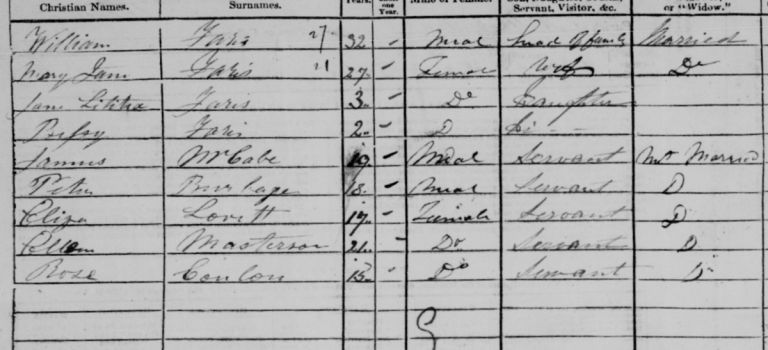 Christian Names. Surnames. Years. one Year. Male or Female. Servant, Visitor, &c. or "Widow."
William Faris 27 32 - Meal head of family Married
Mary Jane Faris 27 - Femal Wife Do
Jane Lititia Faris 3 - Do Daughter
Betsy Faris 2 - D Do
James McCabe 19 - Meal Servant Not Married
Peter 18 - Meal Servant D
Eliza Lovitt 17 - Female Servant D
Ellen Masterson 21 - Do Servant D
Rose Conlon 15 - Do Servant D